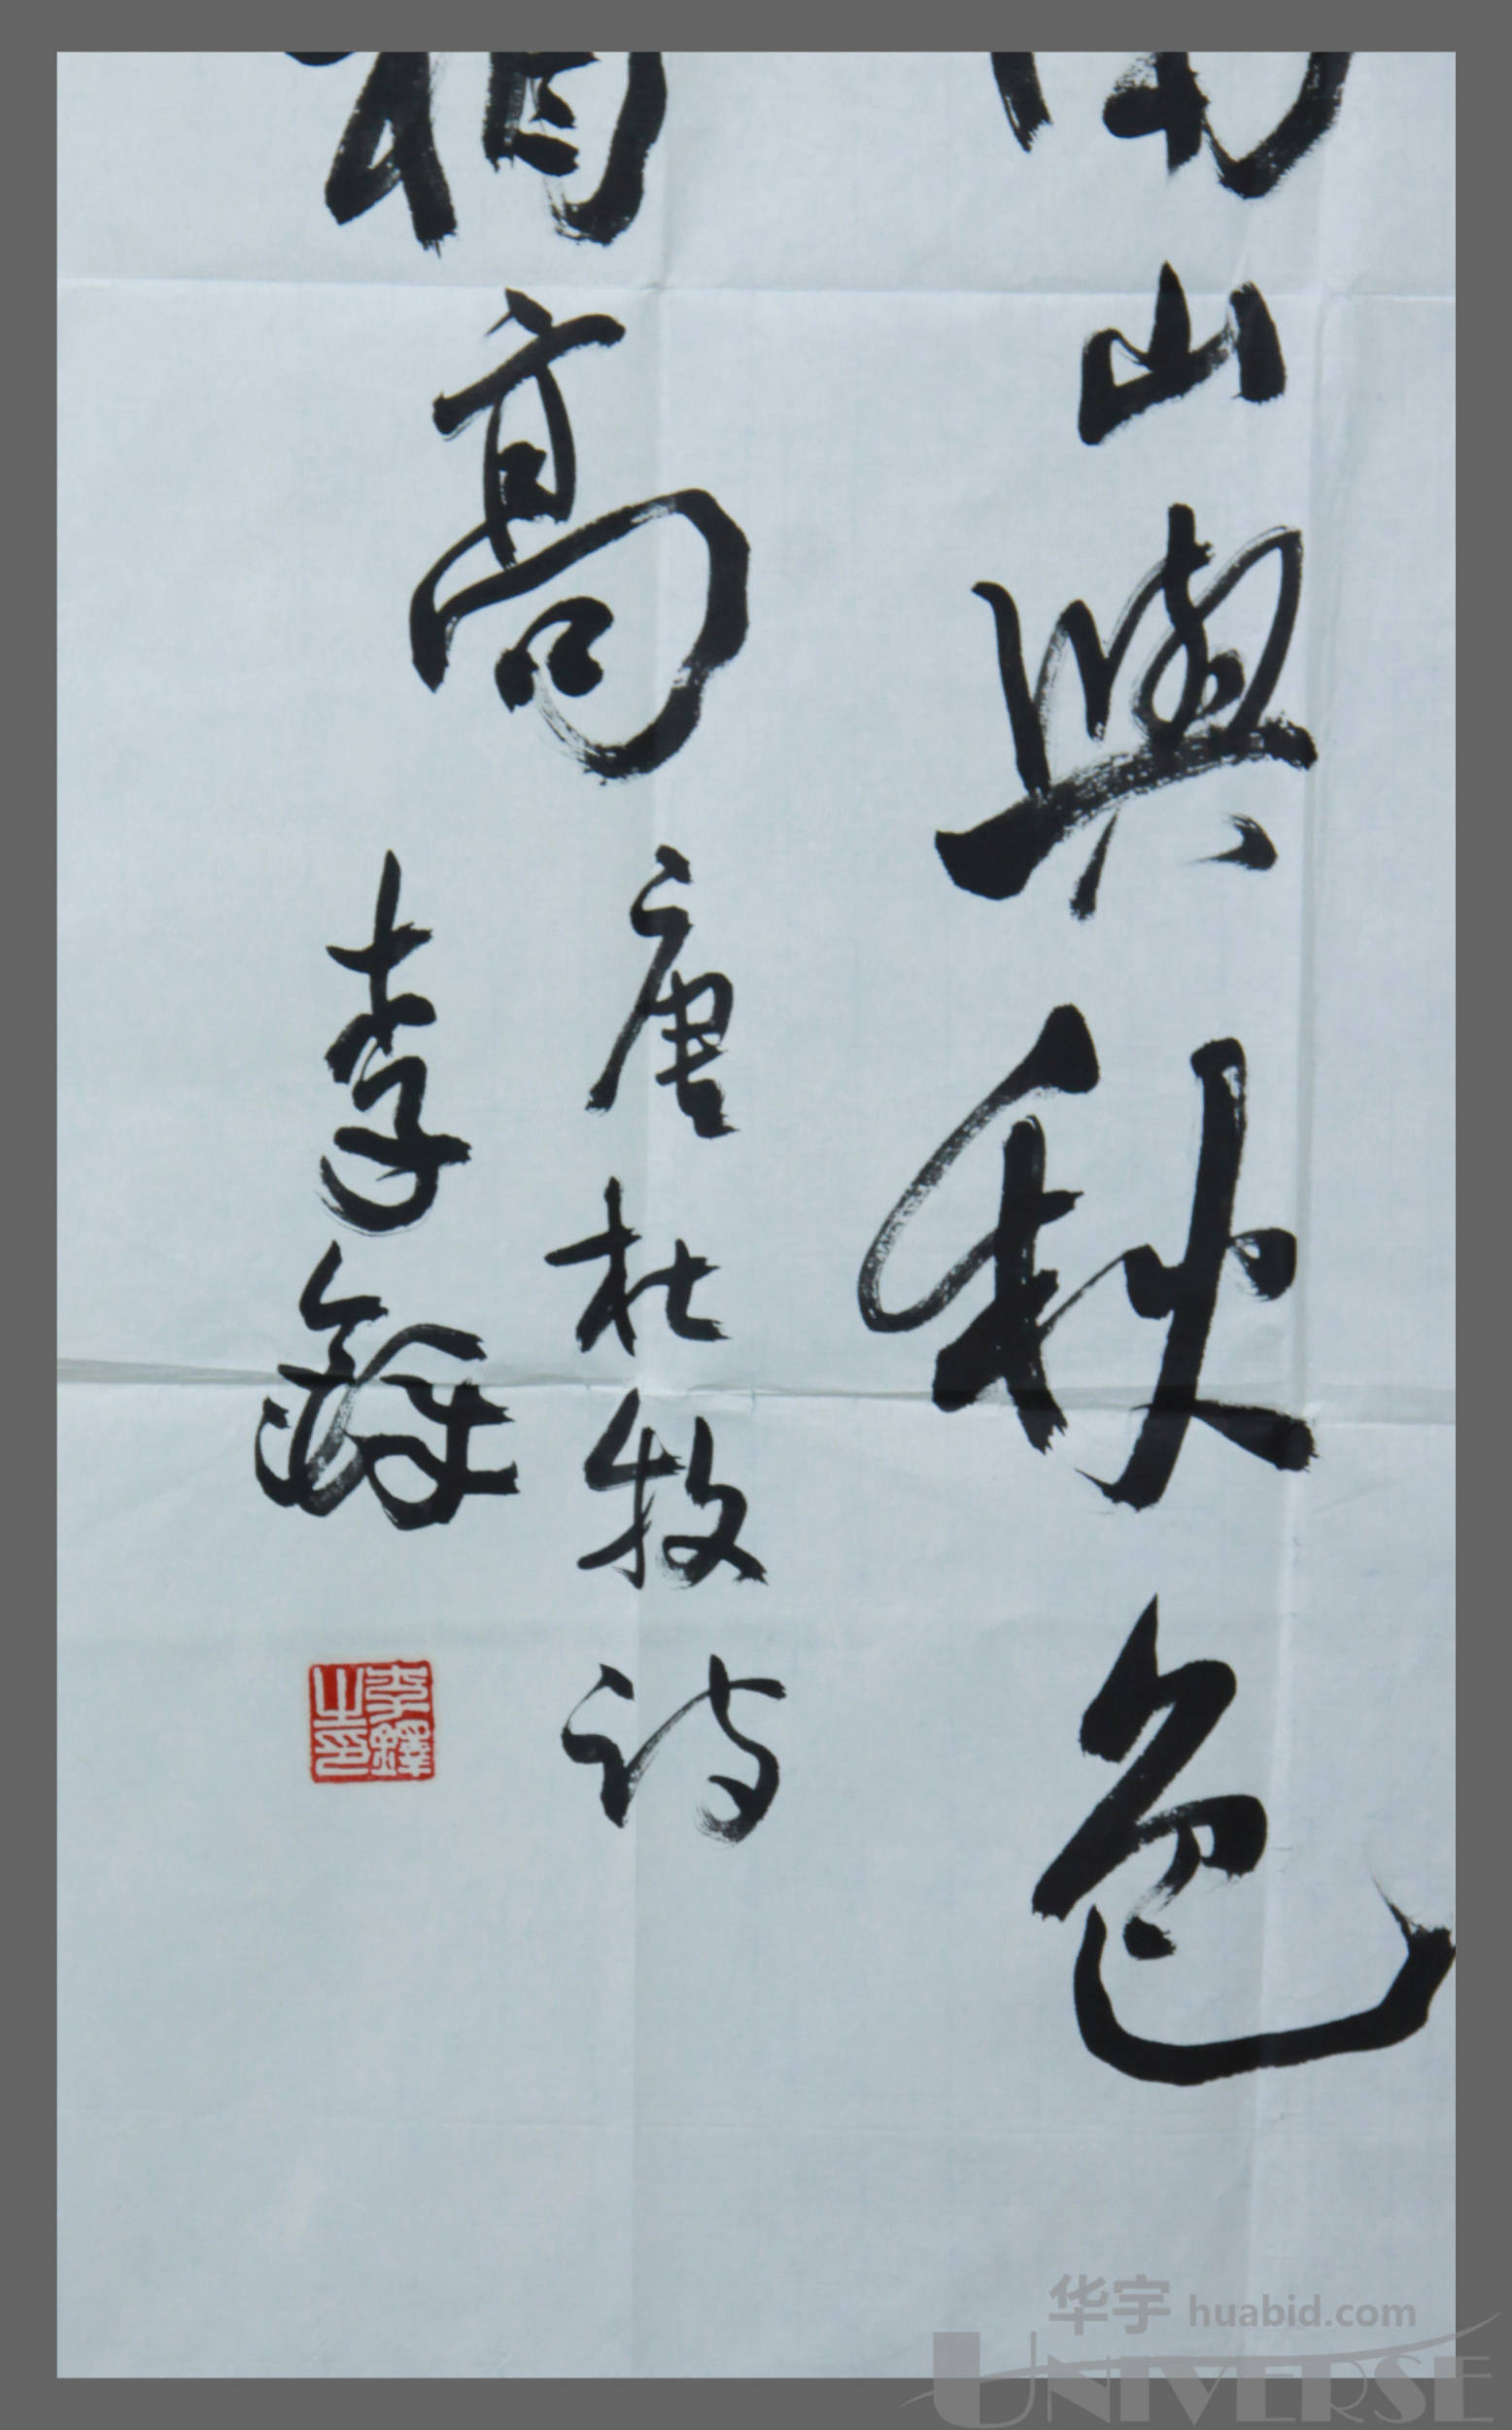 南山與秋色
相高
唐杜牧诗
李鐸
李鐸
之印
华宇 huabid.com
UNIVERSE